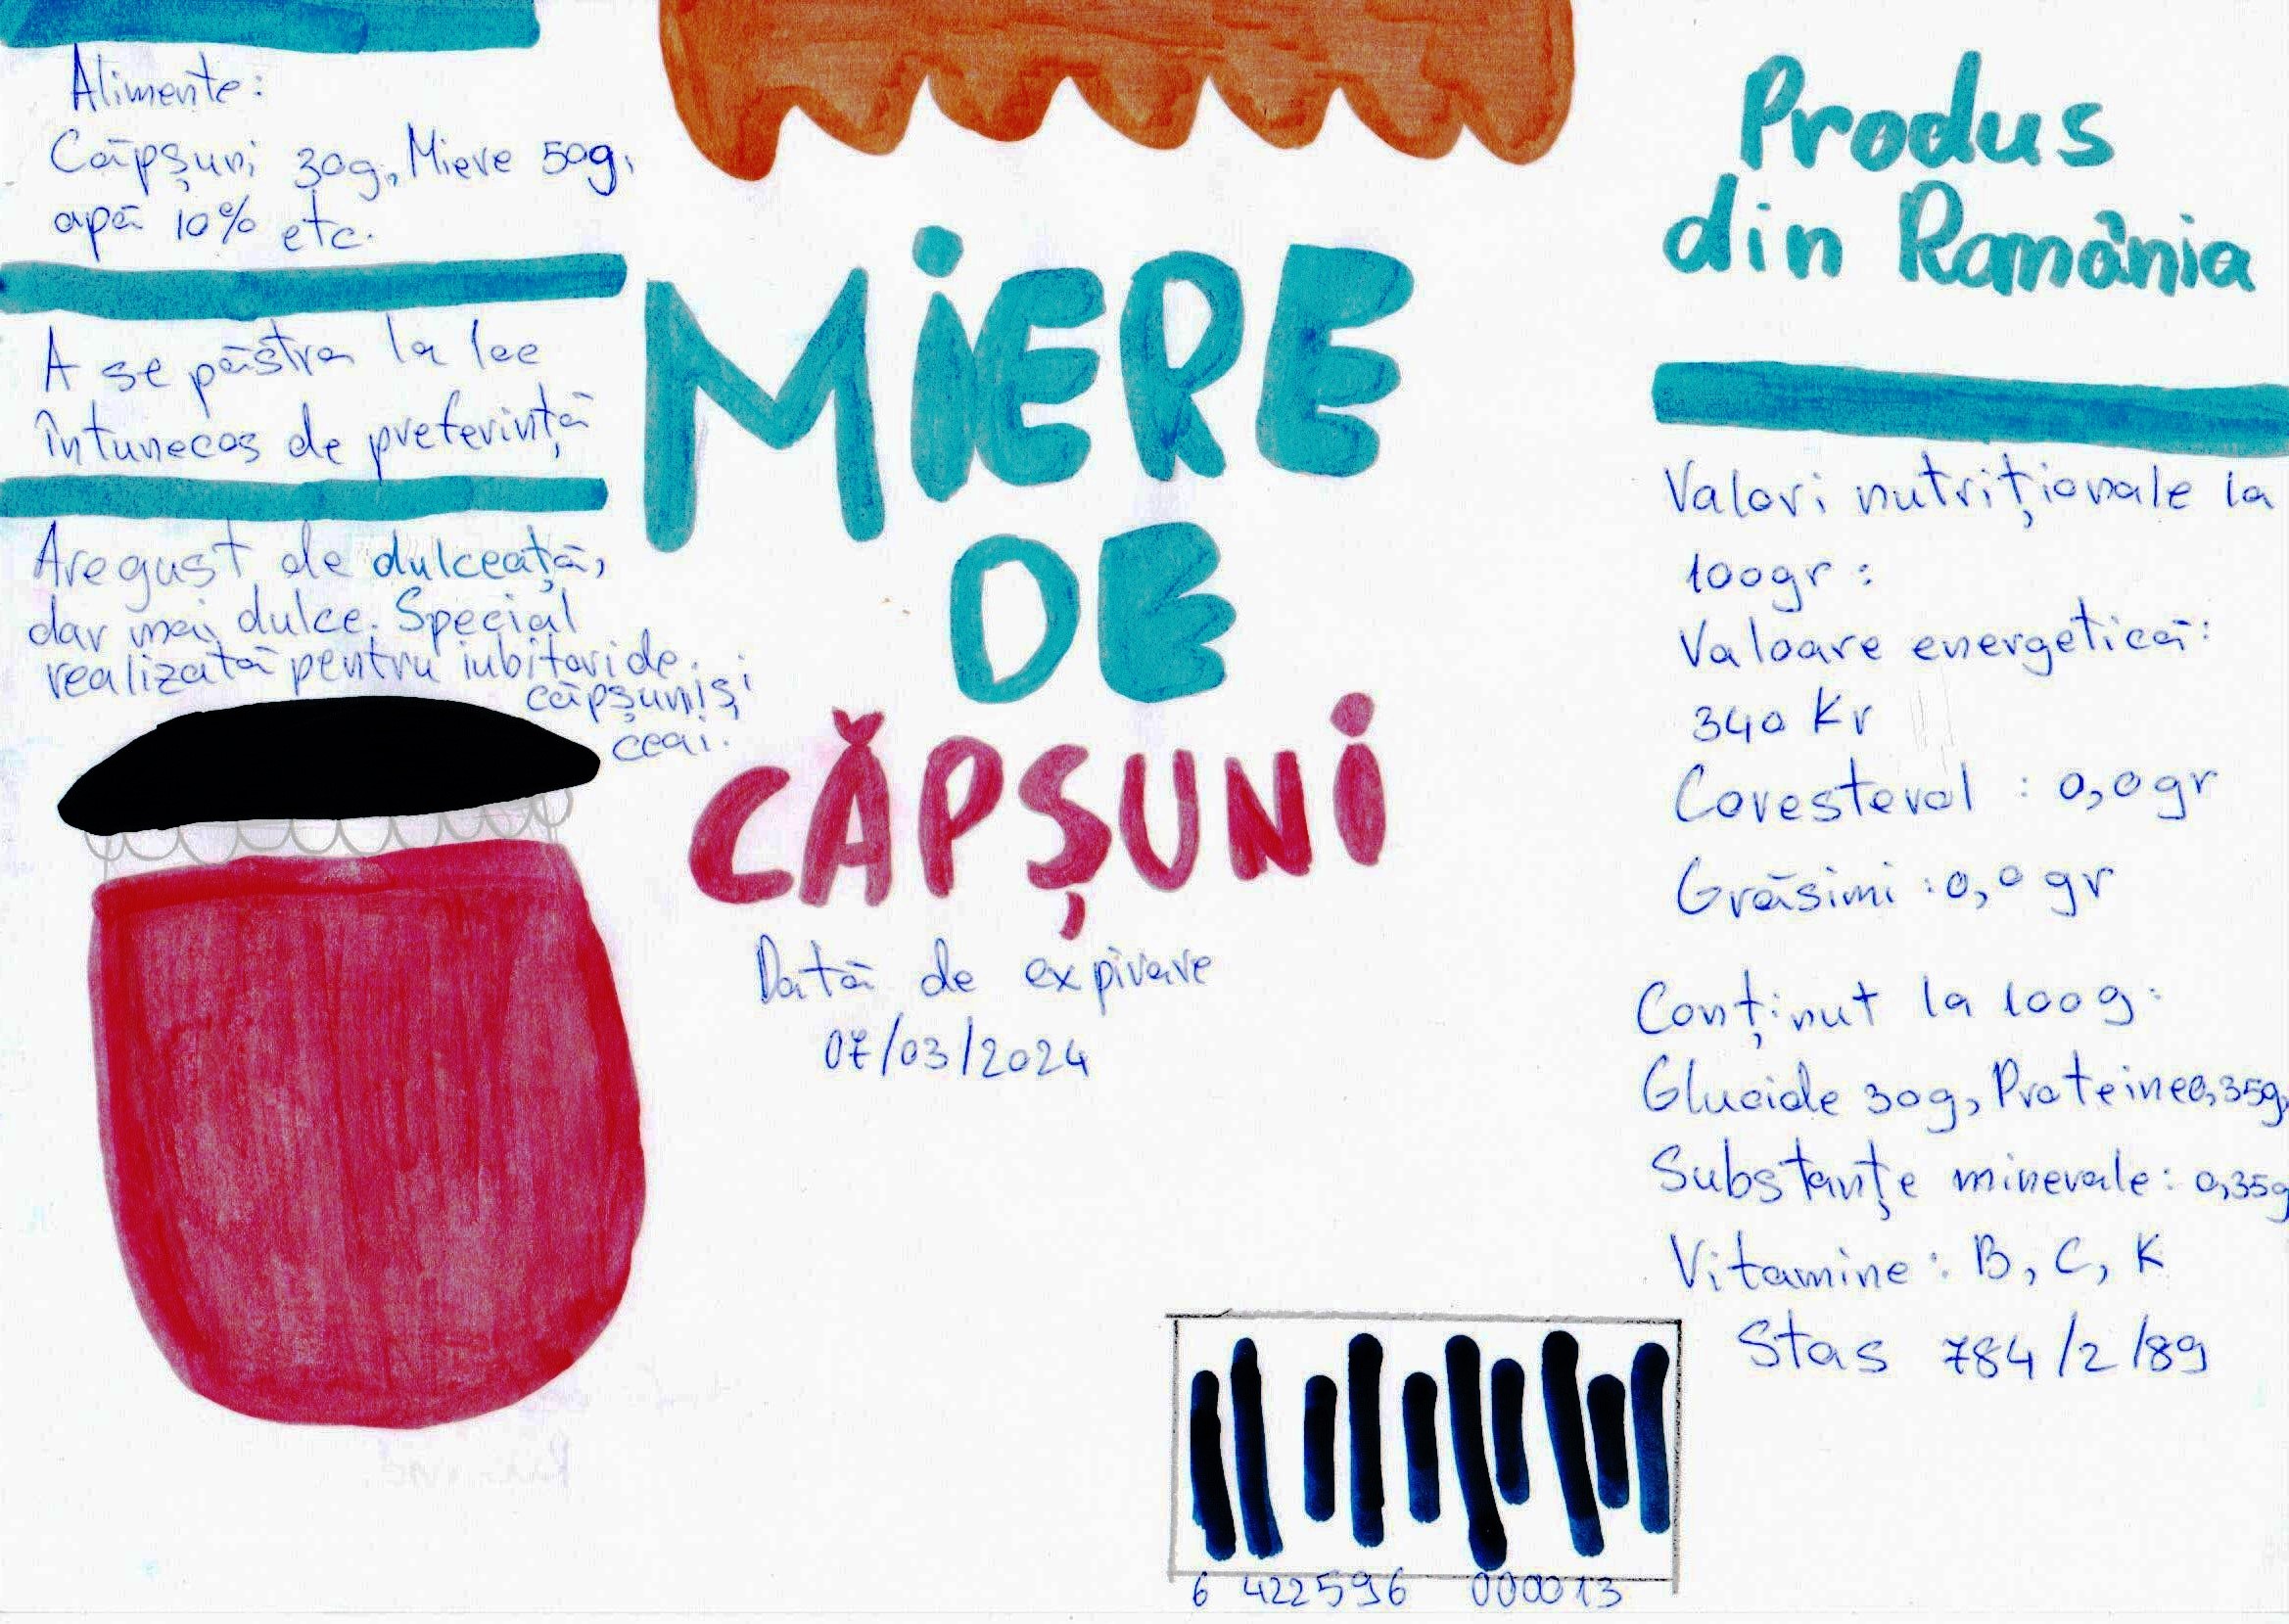 Alimente:
Căpșuni 30g, Miere 50g,
apă 10% etc.
A se păstra la loc
întunecos de preferință
Are gust de dulceață,
dar mai dulce. Special
realizată pentru iubitori de
căpșuni și
ceai.
MiERE
DE
CĂPȘUNi
Dată de expirare
07/03/2024
Produs
din România
Valori nutriționale la
100gr:
Valoare energetică:
340 Kr
Coresterol : 0,0gr
Grăsimi : 0,0 gr
Conținut la 100g:
Glucide 30g, Proteine 0,35g,
Substanțe minerale: 0,35g
Vitamine: B, C, K
Stas 784/2/89
6 422596 000013